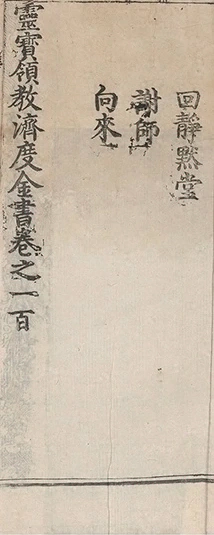 回靜默堂
謝師
向來
靈寶領教濟度金書卷之一百